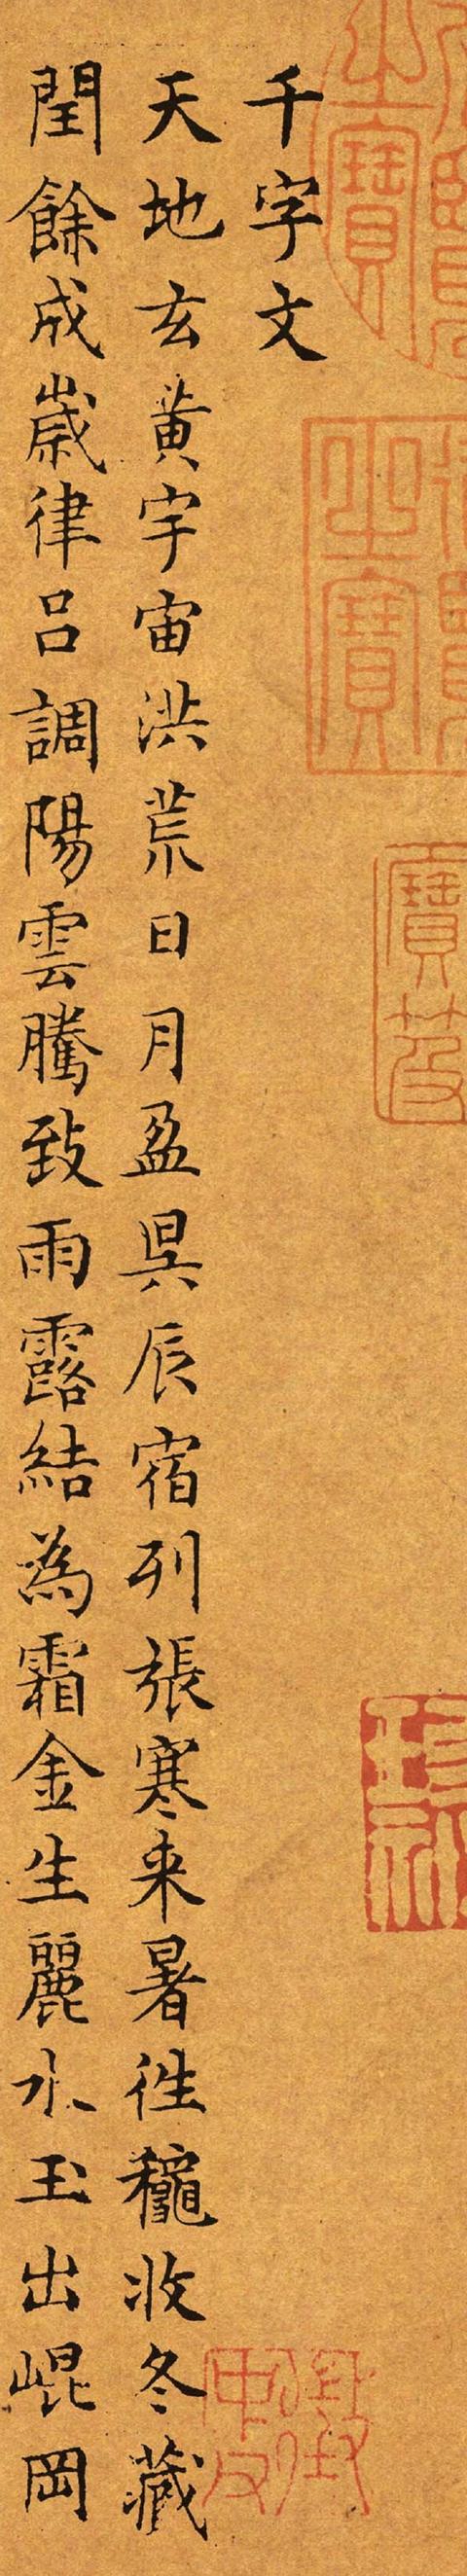 千字文
天地玄黄宇宙洪荒日月盈昃辰宿列張寒来暑往龝收冬藏
閏餘成歲律吕調陽雲騰致雨露結為霜金生麗水玉出崐岡